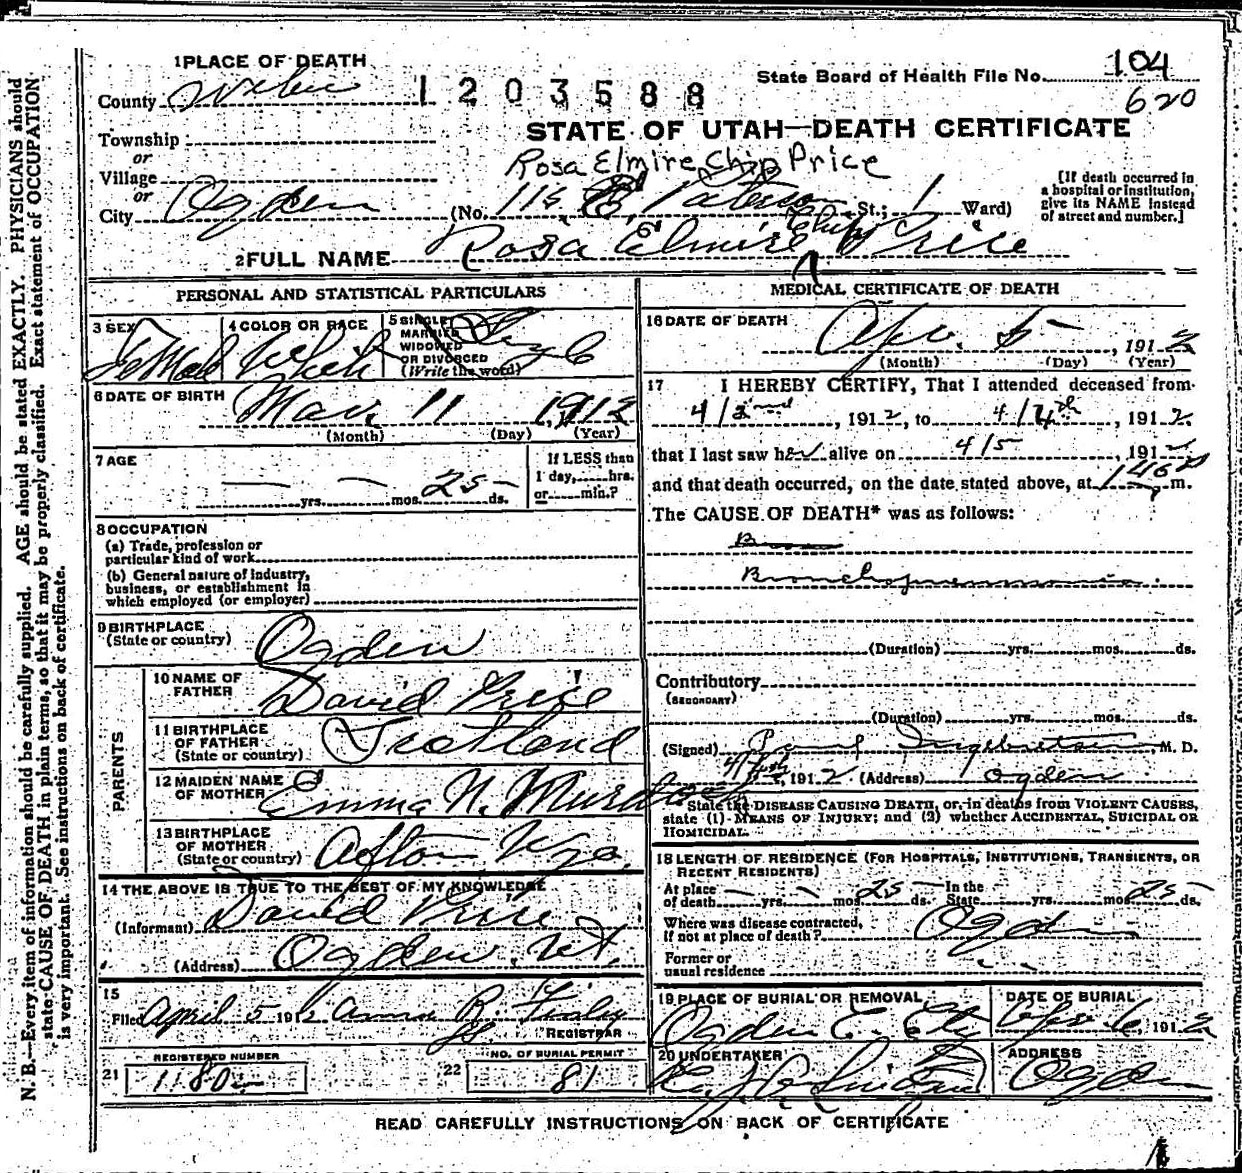 1 PLACE OF DEATH
State Board of Health File No. 104
County Weber 1203588 620
STATE OF UTAH—DEATH CERTIFICATE
Township
or
Rosa Elmire Chip Price
Village
or
City Ogden (No. 115 St.; 1 Ward)
[If death occurred in
a hospital or institution,
give its NAME instead
of street and number.]
2 FULL NAME Rosa Elmire Chip Price
PERSONAL AND STATISTICAL PARTICULARS
3 SEX Female
4 COLOR OR RACE White
5 SINGLE
MARRIED
WIDOWED
OR DIVORCED
(Write the word) Single
6 DATE OF BIRTH Mar 11 1912
(Month) (Day) (Year)
7 AGE
— yrs. — mos. 25 ds.
If LESS than
1 day, hrs.
or min.?
8 OCCUPATION
(a) Trade, profession or
particular kind of work
(b) General nature of industry,
business, or establishment in
which employed (or employer)
9 BIRTHPLACE
(State or country) Ogden
PARENTS
10 NAME OF
FATHER David Price
11 BIRTHPLACE
OF FATHER
(State or country) Scotland
12 MAIDEN NAME
OF MOTHER Emma N.
13 BIRTHPLACE
OF MOTHER
(State or country) Afton Wyo.
14 THE ABOVE IS TRUE TO THE BEST OF MY KNOWLEDGE
(Informant) David Price
(Address) Ogden Ut.
15
Filed April 5 1912
REGISTRAR
REGISTERED NUMBER
21 1180
NO. OF BURIAL PERMIT
22 81
MEDICAL CERTIFICATE OF DEATH
16 DATE OF DEATH
Apr. 5, 1912
(Month) (Day) (Year)
17 I HEREBY CERTIFY, That I attended deceased from
4/2nd, 1912, to 4/4th, 1912
that I last saw her alive on 4/5, 1912
and that death occurred, on the date stated above, at m.
The CAUSE OF DEATH* was as follows:
Bronchopneumonia.
(Duration) yrs. mos. ds.
Contributory
(SECONDARY)
(Duration) yrs. mos. ds.
(Signed) Ingebretsen M. D.
1912 (Address) Ogden
*State the DISEASE CAUSING DEATH, or, in deaths from VIOLENT CAUSES,
state (1) MEANS OF INJURY; and (2) whether ACCIDENTAL, SUICIDAL OR
HOMICIDAL.
18 LENGTH OF RESIDENCE (FOR HOSPITALS, INSTITUTIONS, TRANSIENTS, OR
RECENT RESIDENTS)
At place
of death — yrs. — mos. 25 ds.
In the
State yrs. mos. 25 ds.
Where was disease contracted,
if not at place of death? Ogden
Former or
usual residence
19 PLACE OF BURIAL OR REMOVAL
Ogden City
DATE OF BURIAL
Apr 6 1912
20 UNDERTAKER
ADDRESS
Ogden
READ CAREFULLY INSTRUCTIONS ON BACK OF CERTIFICATE
N. B.—Every item of information should be carefully supplied. AGE should be stated EXACTLY. PHYSICIANS should
state CAUSE OF DEATH in plain terms, so that it may be properly classified. Exact statement of OCCUPATION
is very important. See instructions on back of certificate.